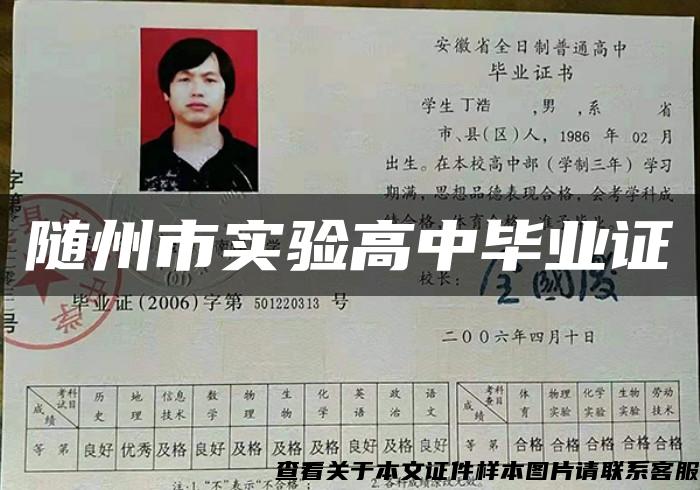 安徽省全日制普通高中
毕业证书
学生丁浩 ,男 ,系 省
市、县(区)人, 1986 年 02 月
出生。在本校高中部(学制三年)学习
期满,思想品德表现合格,会考学科成
随州市实验高中毕业证
校长:
毕业证(2006)字第 501220313 号
二〇〇六年四月十日
考科试目 历史 地理 信息技术 数学 物理 生物 化学 英语 政治 语文
成绩
等 第 良好 优秀 及格 良好 及格 及格 及格 良好 及格 良好
考科查目 体育 物理实验 化学实验 生物实验 劳动技术
成绩
等 第 合格 合格 合格 合格 合格
查看关于本文证件样本图片请联系客服
注:1."不"表示"不合格"